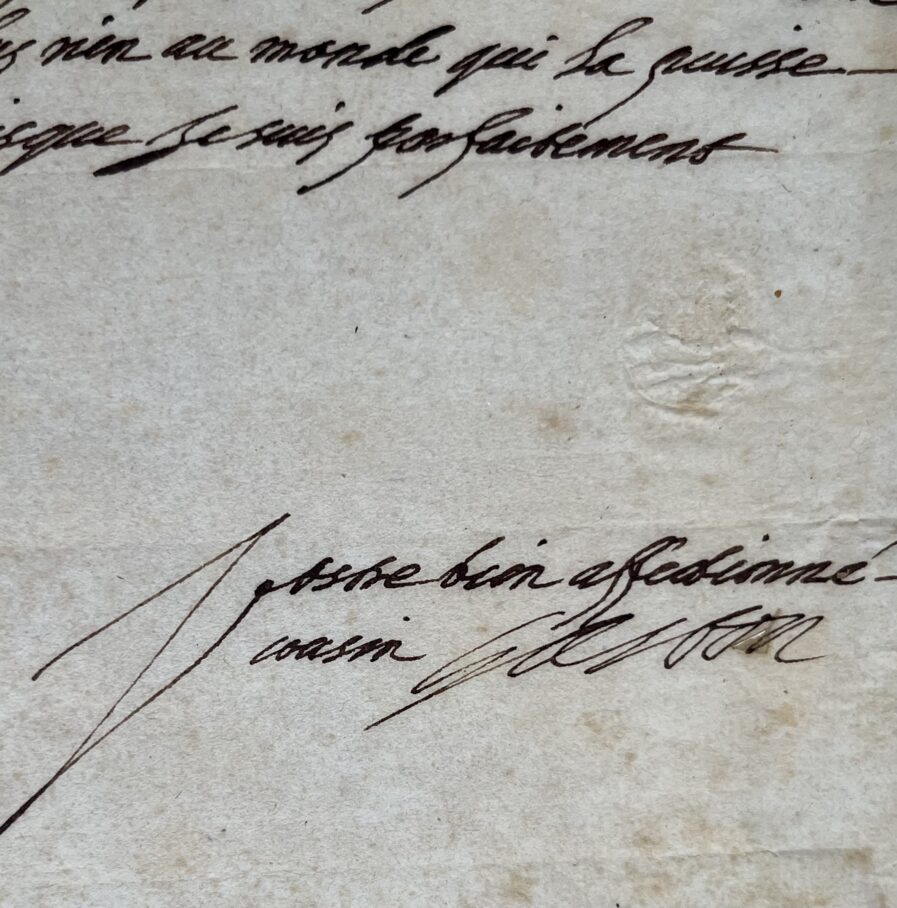 rien au monde qui la puisse
sque Je suis parfaitement
Vostre bien affectionné
cousin Gaston